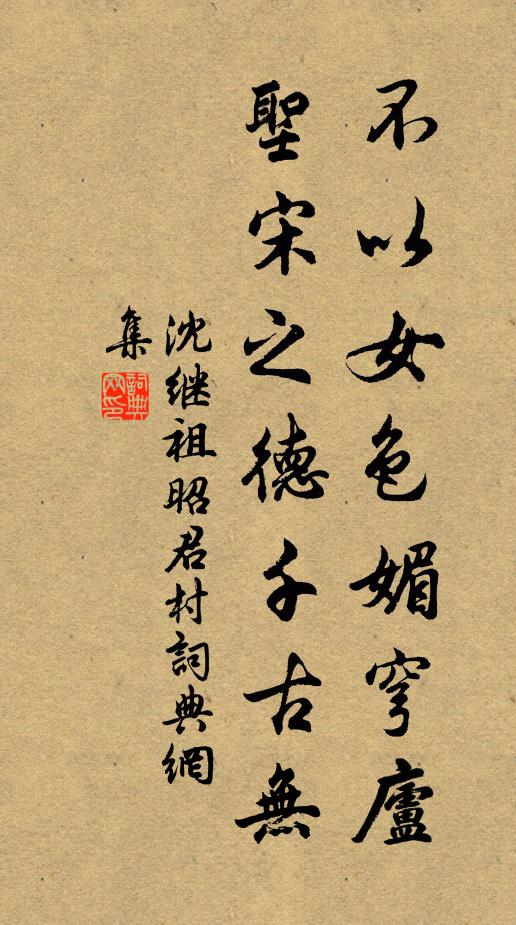 不以女色媚穹廬
聖宋之德千古無
沈继祖昭君村詞典網
集
詞典網印